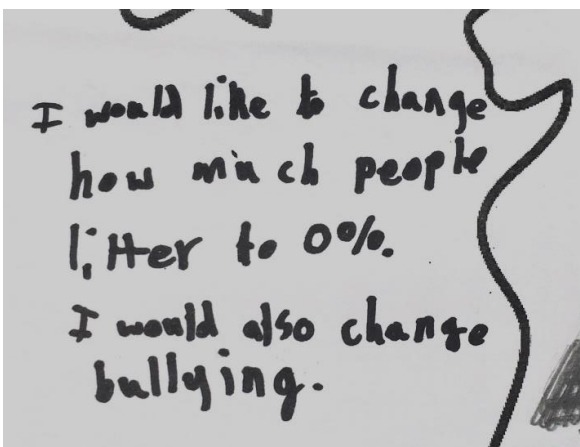 I would like to change
how much people
litter to 0%.
I would also change
bullying.